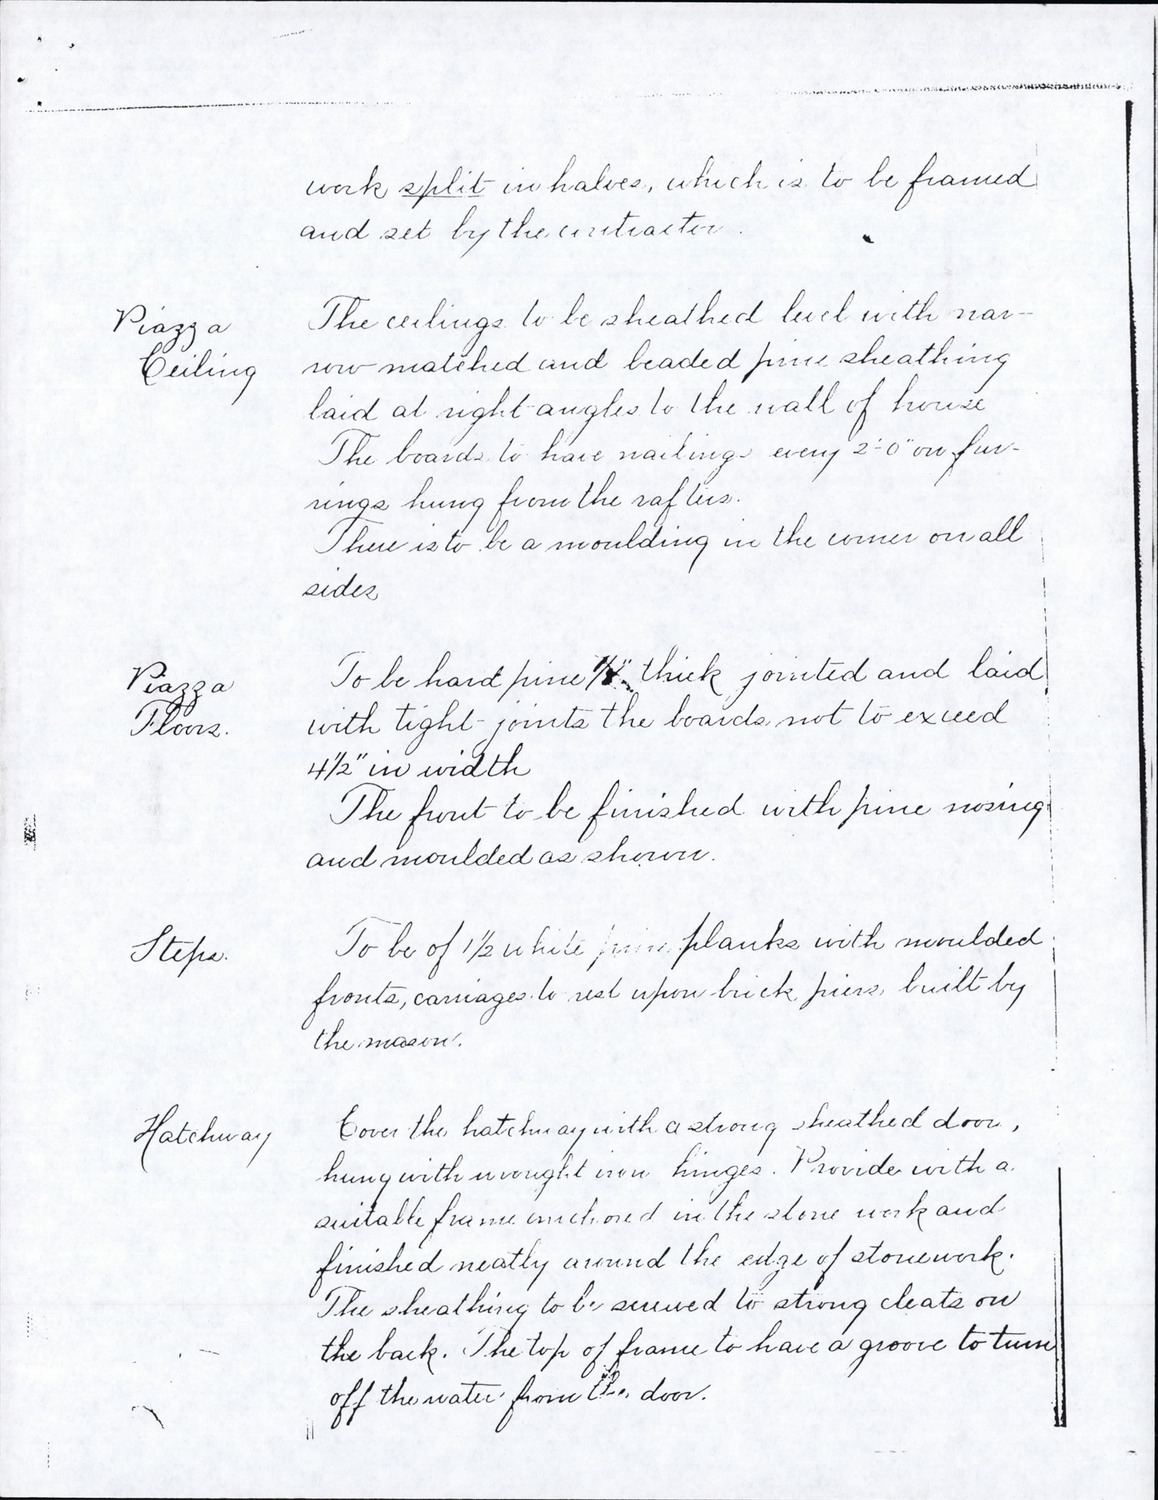 work split in halves, which is to be framed
and set by the contractor.
Piazza
Ceiling
The ceilings to be sheathed level with nar-
row matched and beaded pine sheathing
laid at right angles to the wall of house
The boards to have nailings every 2'-0" on fur-
rings hung from the rafters.
There is to be a moulding in the corner on all
sides
Piazza
Floors.
To be hard pine thick jointed and laid
with tight joints the boards not to exceed
4½" in width
The front to be finished with pine nosing
and moulded as shown.
Steps.
To be of 1½ white pine planks with moulded
fronts, carriages to rest upon brick piers, built by
the mason.
Hatchway
Cover the hatchway with a strong sheathed door,
hung with wrought iron hinges. Provide with a
suitable frame anchored in the stone work and
finished neatly around the edge of stonework.
The sheathing to be screwed to strong cleats on
the back. The top of frame to have a groove to turn
off the water from the door.